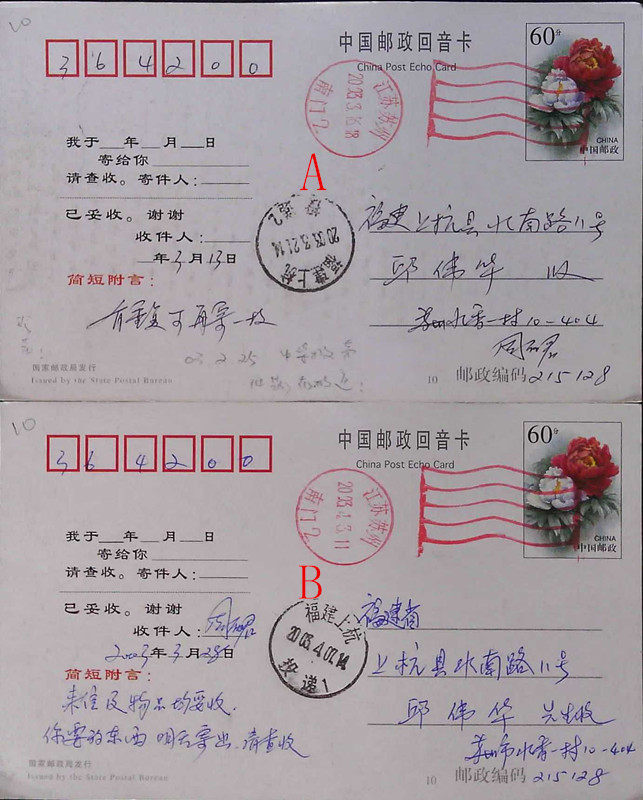 10
364200
中国邮政回音卡
China Post Echo Card
60分
CHINA
中国邮政
江苏苏州
2003.3.16.18
南门2
我于 年 月 日
寄给你
请查收。寄件人：
A
已妥收。谢谢
收件人：
年3月13日
福建上杭
2003.3.21.14
投递2
福建上杭县水南路11号
邱伟华 收
简短附言：
有重复可再寄一枚
苏州水香一村10-404
03 2 25
国家邮政局发行
Issued by the State Postal Bureau
10
邮政编码215128
10
364200
中国邮政回音卡
China Post Echo Card
60分
CHINA
中国邮政
江苏苏州
2003.4.3.11
南门2
我于 年 月 日
寄给你
请查收。寄件人：
B
已妥收。谢谢
收件人：
2003年3月28日
福建上杭
2003.4.07.14
投递1
福建省
上杭县水南路11号
邱伟华 先生收
简短附言：
来信及物品均妥收.
你要的东西 明后寄出.请查收
苏州市水香一村10-404
国家邮政局发行
Issued by the State Postal Bureau
10
邮政编码215128